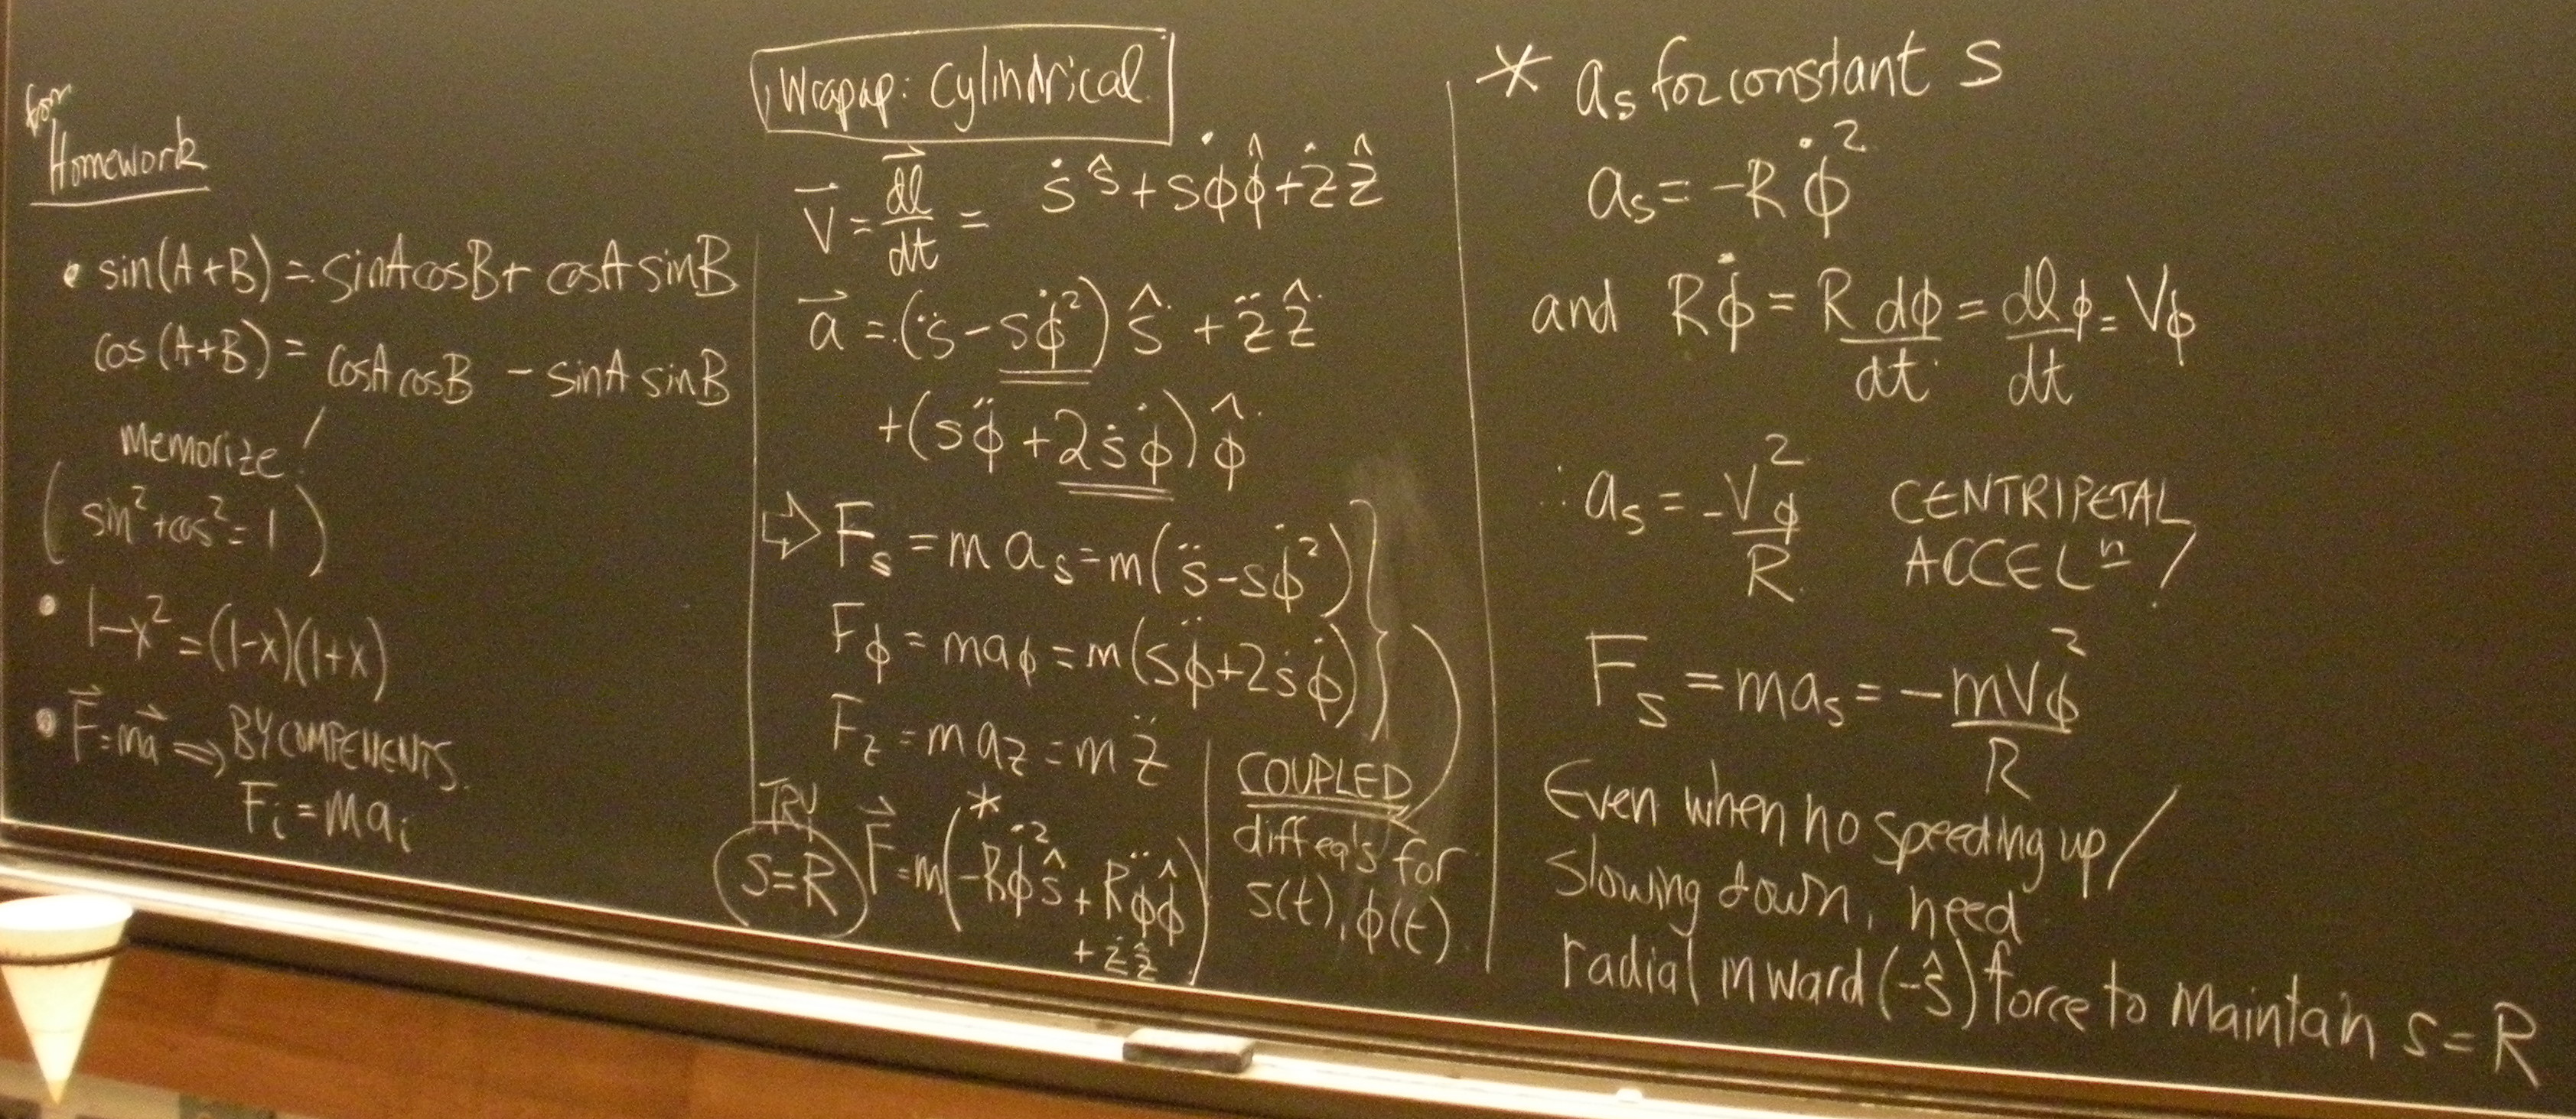 for
Homework
• sin(A+B) = sinAcosB + cosA sinB
cos(A+B) = cosA cosB - sinA sinB
Memorize!
(sin²+cos²=1)
• 1-x²=(1-x)(1+x)
• F⃗=ma⃗ ⇒ BY COMPENENTS.
Fᵢ=maᵢ
Wrapup: Cylindrical
V⃗ = dl⃗/dt = ṡ ŝ + sϕ̇ϕ̂ + ż ẑ
a⃗ = (s̈ - sϕ̇²) ŝ + z̈ ẑ
+(sϕ̈ + 2ṡϕ̇) ϕ̂
⇨ F_s = m a_s = m(s̈-sϕ̇²)
F_ϕ = ma_ϕ = m(sϕ̈+2ṡϕ̇)
F_z = m a_z = m z̈
TRY
s=R
*
F⃗=m(-Rϕ̇²ŝ + Rϕ̈ϕ̂
+ z̈ ẑ)
COUPLED
diffeq's for
s(t), ϕ(t).
* a_s for constant s
a_s = -Rϕ̇²
and Rϕ̇ = R dϕ/dt = dl_ϕ/dt = V_ϕ
∴ a_s = -V_ϕ²/R CENTRIPETAL
ACCELⁿ!
F_s = ma_s = -mV_ϕ²/R
Even when no speeding up/
slowing down, need
radial inward (-ŝ) force to maintain s=R